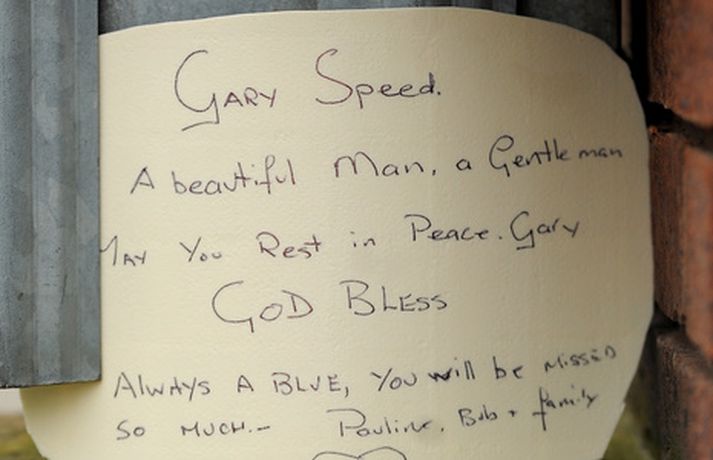 GARY Speed.
A beautiful Man, a Gentleman
MAY You Rest in Peace. Gary
GOD BLESS
ALWAYS A BLUE, YOU will be MISSED
SO MUCH.- Pauline, Bob + family